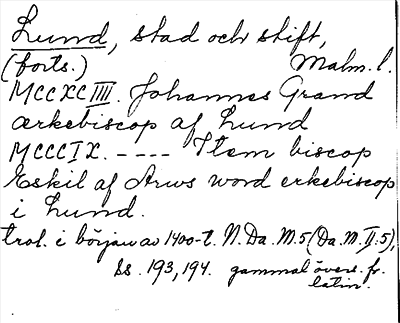 Lund, stad och stift,
(forts.) Malm. l.
MCCXCIIII. Johannes Grand
ærkebiscop af Lund
MCCCIX. ---- Item biscop
Eskil af Arws word erkebiscop
i Lund.
trol. i början av 1400-t. N. Da. M. 5 (Da. M. II: 5),
ss. 193, 194. gammal övers. fr.
latin.